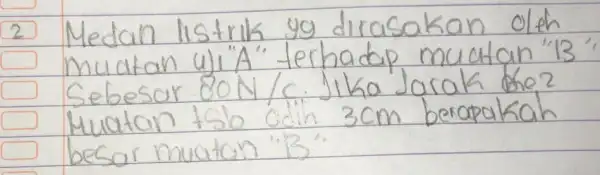 2 Medan listrik yg dirasakan oleh
muatan uji "A" terhadap muatan "B"
Sebesar 80 N/c. Jika Jarak ke2
Muatan tsb adlh 3cm berapakah
besar muatan "B".